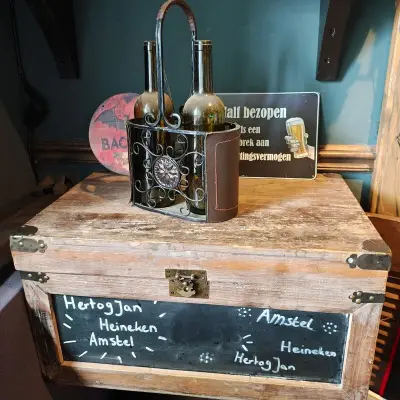 BAC
Half bezopen
is een
brek aan
tingsvermogen
Hertog Jan
Heineken
Amstel
Amstel
Heineken
Hertog Jan